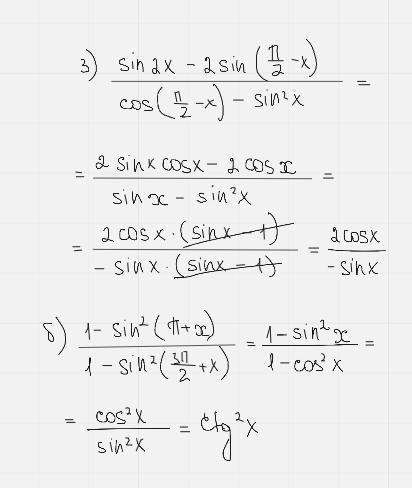 3) (sin 2x - 2 sin (π/2 - x)) / (cos (π/2 - x) - sin²x) =
= (2 sinx cosx - 2 cos x) / (sin x - sin²x) =
= (2 cos x · (sinx - 1)) / (- sin x · (sinx - 1)) = 2cosx / -sinx
б) (1 - sin² (π + x)) / (1 - sin² (3π/2 + x)) = (1 - sin²x) / (1 - cos²x) =
= cos²x / sin²x = ctg²x